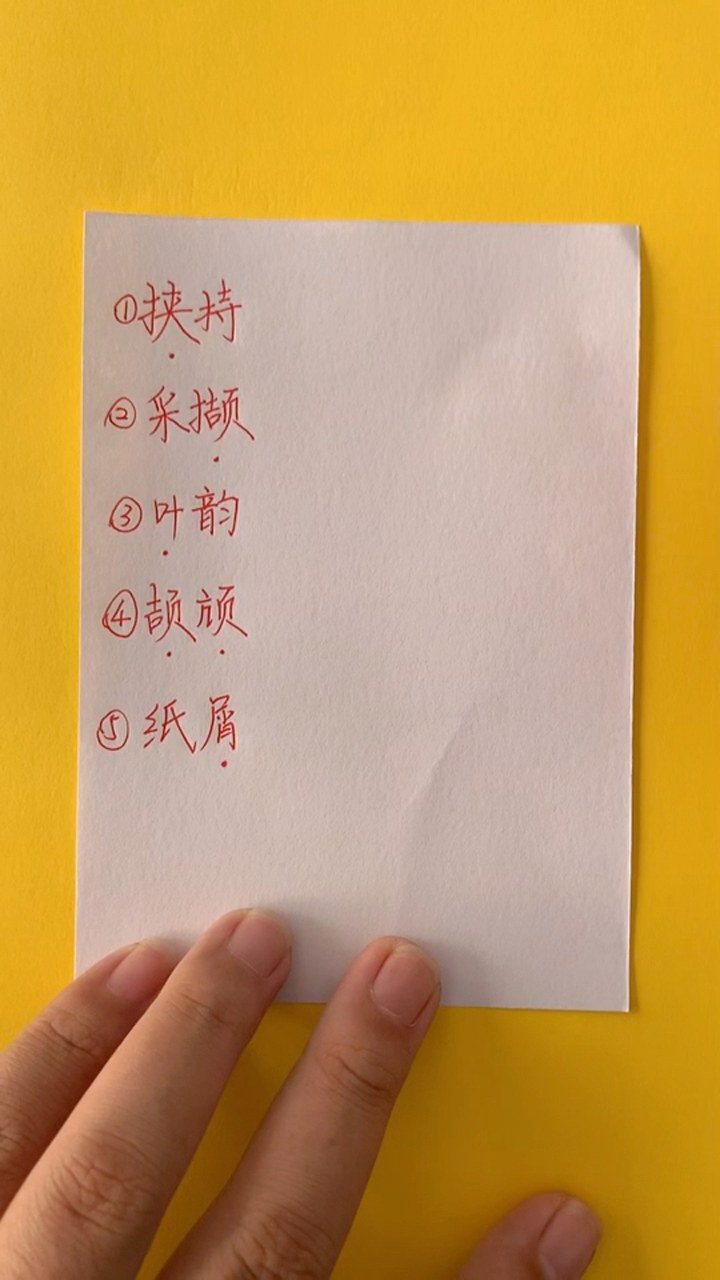 ①挟持
②采撷
③叶韵
④颉颃
⑤纸屑